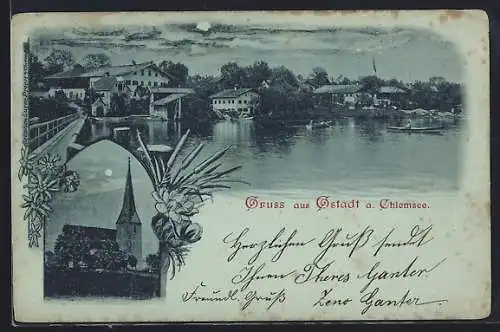 Gruss aus Gstadt a. Chiemsee.
Herzlichen Gruß sendet
Ihnen Theres Ganter
Freundl. Gruß Zeno Ganter.